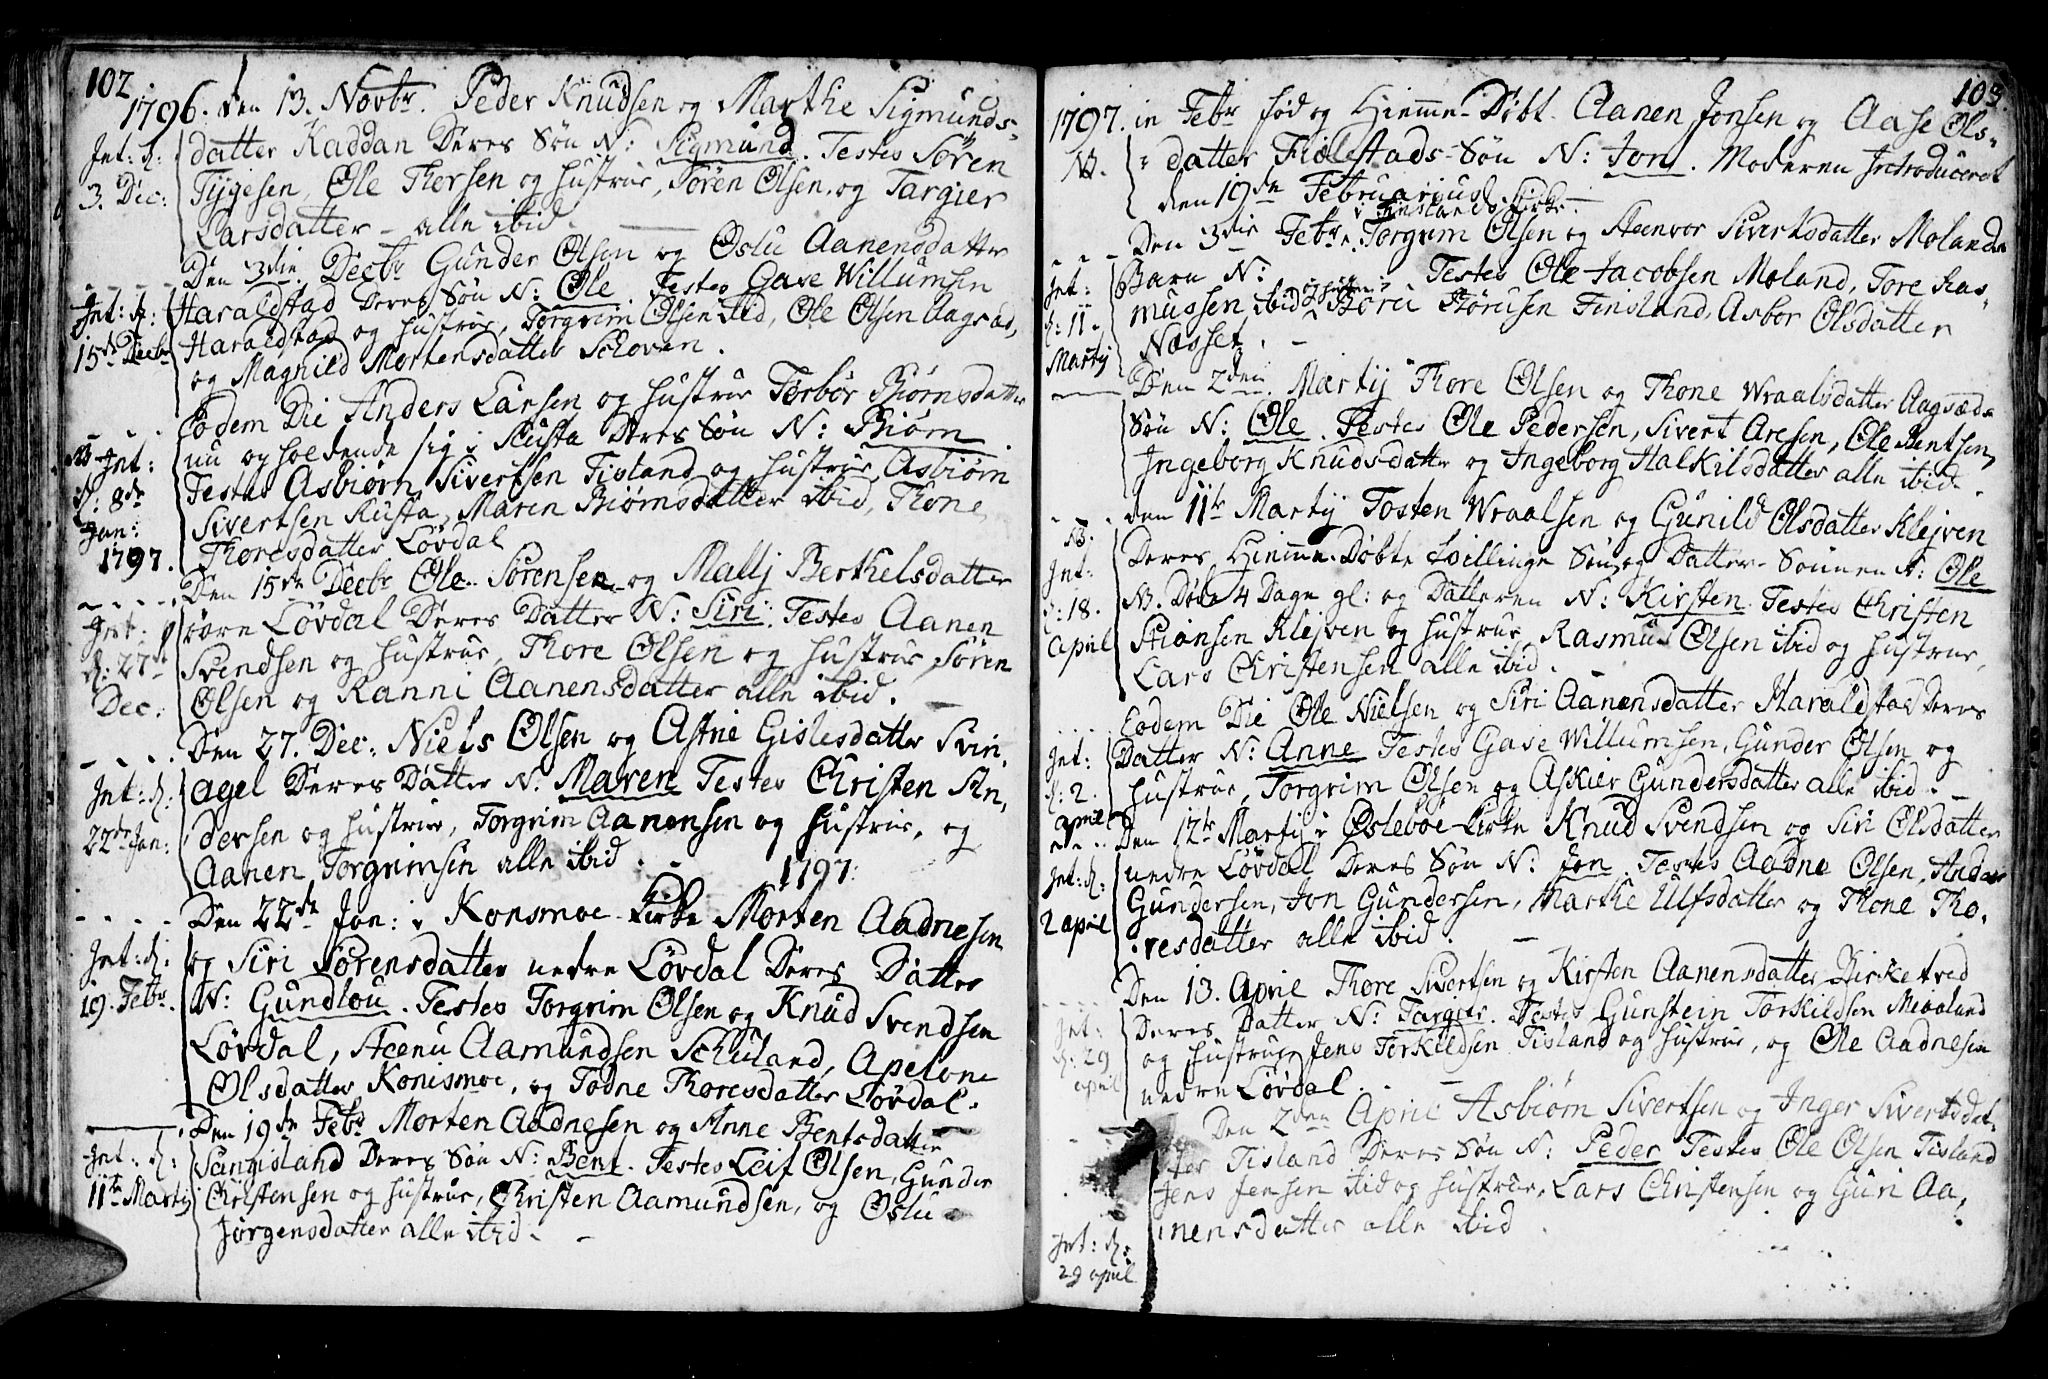 102
1796. den 13. Novbr. Peder Knudsen og Marthe Sigmunds-
Int: d: datter Haddan Deres Søn N: Sigmund. Testes Søren
3. Dec: Tygesen, Ole Thorsen og hustrue, Søren Olsen, og Targier
Larsdatter - alle ibid.
Den 3die Decbr Gunder Olsen og Oslu Aanensdatter
Int: d: Haraldstad Deres Søn N: Ole. Testes Gase Willumsen
15de Decbr Haraldstad og hustrue, Torgrim Olsen ibid, Ole Olsen Aagsæd,
og Magnild Mortensdatter Schoven.
Eodem Die Anders Larsen og hustrue Torbor Biørnsdatter
NB Int: nu opholdende sig i Rusta Deres Søn N: Biørn
d: 8de Testes Asbiørn Sivertsen Fisland og hustrue, Asbiørn
Jan: Sivertsen Rusta, Maren Biørnsdatter ibid, Thone
1797. Thoresdatter Løvdal
Den 15de Decbr Ole Sørensen og Mallj Berthelsdatter
Int: øvre Løvdal Deres Datter N: Siri. Testes Aanen
d: 27de Svendsen og hustrue, Thore Olsen og hustrue Søren
Dec: Olsen og Ranni Aanensdatter alle ibid.
Den 27. Dec: Niels Olsen og Astrie Gislesdatter Svin,
Int: d: agel Deres Datter N: Maren Testes Christen An,
22de Jan: dersen og hustrue, Torgrim Aanensen og hustrue, og
Aanen Torgrimsen alle ibid.
1797.
Den 22de Jan: i Konsmoe Kirke Morten Aadnesen
Int: d: og Siri Sørensdatter nedre Løvdal Deres Datter
19. Febr. N: Gundlou. Testes Torgrim Olsen og Knud Svendsen
Løvdal, Steenu Aamundsen Schuland, Apelone
Olsdatter Konismoe, og Todne Thoresdatter Løvdal.
Den 19de Febr Morten Aadnesen og Anne Bentsdatter
Int: d: Sangisland Deres Søn N: Bent. Testes Leif Olsen, Gunder
11te Martij Christensen og hustrue, Christen Aamundsen, og Oslu
Jørgensdatter alle ibid.
103.
1797. in Febr fød og Hiemme-Døbt. Aanen Jonsen og Aase Ols-
NB. datter Fidlestads-Søn N: Jon. Moderen Introduceret
den 19de Februarius
i Finslands Kirke.
Den 3die Febr. Torgrim Olsen og Steenvor Sivertsdatter Molands
Int: Barn N: Testes Ole Jacobsen Moland, Tore Ras-
d: 11. mussen, ibid og hustrue, Børu Størusen Finsland, Asbor Olsdatter
Martij Næsset.
Den 2den Martij Thore Olsen og Thone Wraalsdatter Aagsæd
Søn N: Ole. Testes Ole Pedersen, Sivert Aresen, Ole Bentsen,
Ingeborg Knudsdatter og Ingeborg Halkilsdatter alle ibid.
den 11te Martij Tosten Wraalsen og Gunild Olsdatter Klejven
NB. Deres Hiemme-Døbte Tvillinge Søn og Datter- Sønnen N: Ole
Int: NB. Døbt 4 Dage gl: og Datteren N: Kirsten. Testes Christen
d: 18. Stiansen Klejven og hustrue, Rasmus Olsen ibid og hustrue,
april Lars Christensen alle ibid.
Eodem Die Ole Nielsen og Siri Aanensdatter Haraldstad Deres
Int: Datter N: Anne Testes Gase Willumsen, Gunder Olsen og
d: 2. hustrue, Torgrim Olsen og Askier Gundersdatter alle ibid.
april Den 12te Martij i Øslebøe-kirke Knud Svendsen og Siri Olsdatter
Int: d: nedre Løvdal Deres Søn N: Jon. Testes Aadne Olsen, Anders
2 april Gundersen, Jon Gundersen, Marthe Ulfsdatter og Thone Tho,
resdatter alle ibid.
Den 13. April Thore Sivertsen og Kirsten Aanensdatter Birketved
Int: Deres Datter N: Targier. Testes Gunstein Torkildsen Meeland
d: 29 og hustrue, Jens Terkildsen Fisland og hustrue, og Ole Aadnesen
april nedre Løvdal.
Den 2den April Asbiørn Sivertsen og Inger Sivertsdat-
ter Fisland Deres Søn N: Peder Testes Ole Olsen Fisland
Jens Jensen ibid og hustrue, Lars Christensen og Guri Aa,
Int: d: nensdatter alle ibid.
29 april